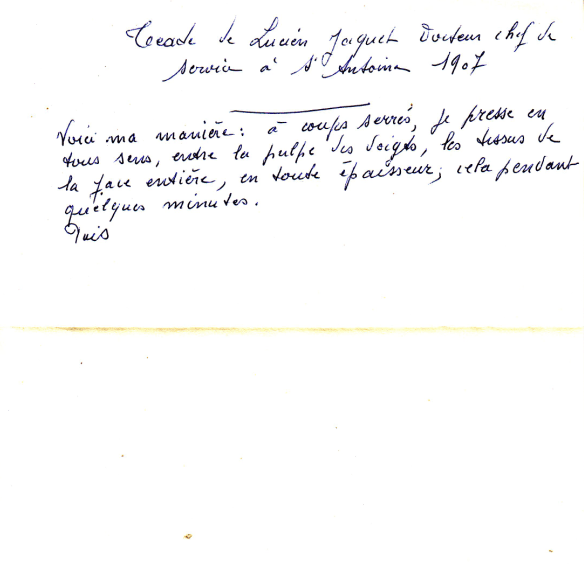 Tcade de Lucien Jaquet Docteur chef de
service à St Antoine 1907
Voici ma manière : à coups serrés, je presse en
tous sens, entre la pulpe des doigts, les tissus de
la face entière, en toute épaisseur ; cela pendant
quelques minutes.
Puis